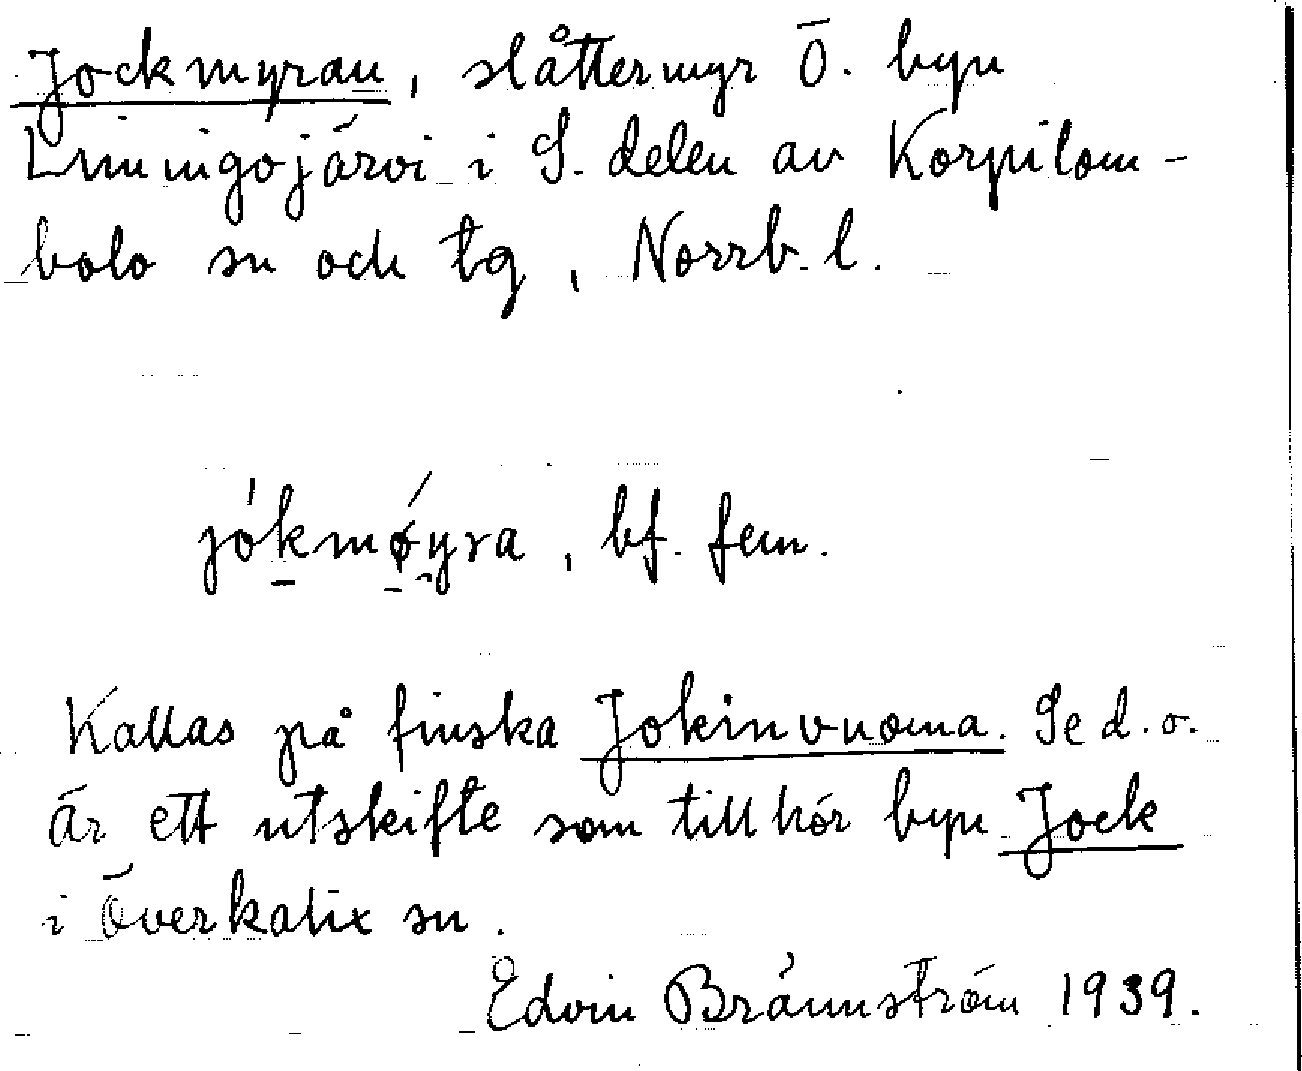 Jockmyran, slåttermyr Ö. byn
Liminigojärvi i S. delen av Korpilom-
bolo sn och tg, Norrb. l.
jókmǿyra, bf. fem.
Kallas på finska Jokinvuoma. Se d. o.
Är ett utskifte som tillhör byn Jock
i Överkalix sn.
Edvin Brännström 1939.